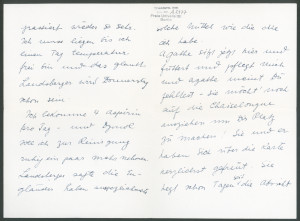 grassiert wieder so sehr.
Ich muss liegen bis ich
einen Tag temperatur-
frei bin und das glaubt
Landsberger wird Donnerstag
schon sein.
Ich bekomme 2 Aspirin
pro Tag – und
soll ich zur Reinigung
ruhig ein paar mal nehmen.
Landsberger sagte die
haben ausgezeichnete
solche Mittel wie die
ich habe
Agathe sitzt jetzt hier und
füttert und pflegt mich
und Agathe meint Du
fehltest – sie möcht noch
auf die Chaiselongue
ausziehen um Dir Platz
zu machen. Sie und er
haben sich über die Karte
herzlichst gefreut. Sie
liegt schon Tagen die Absicht